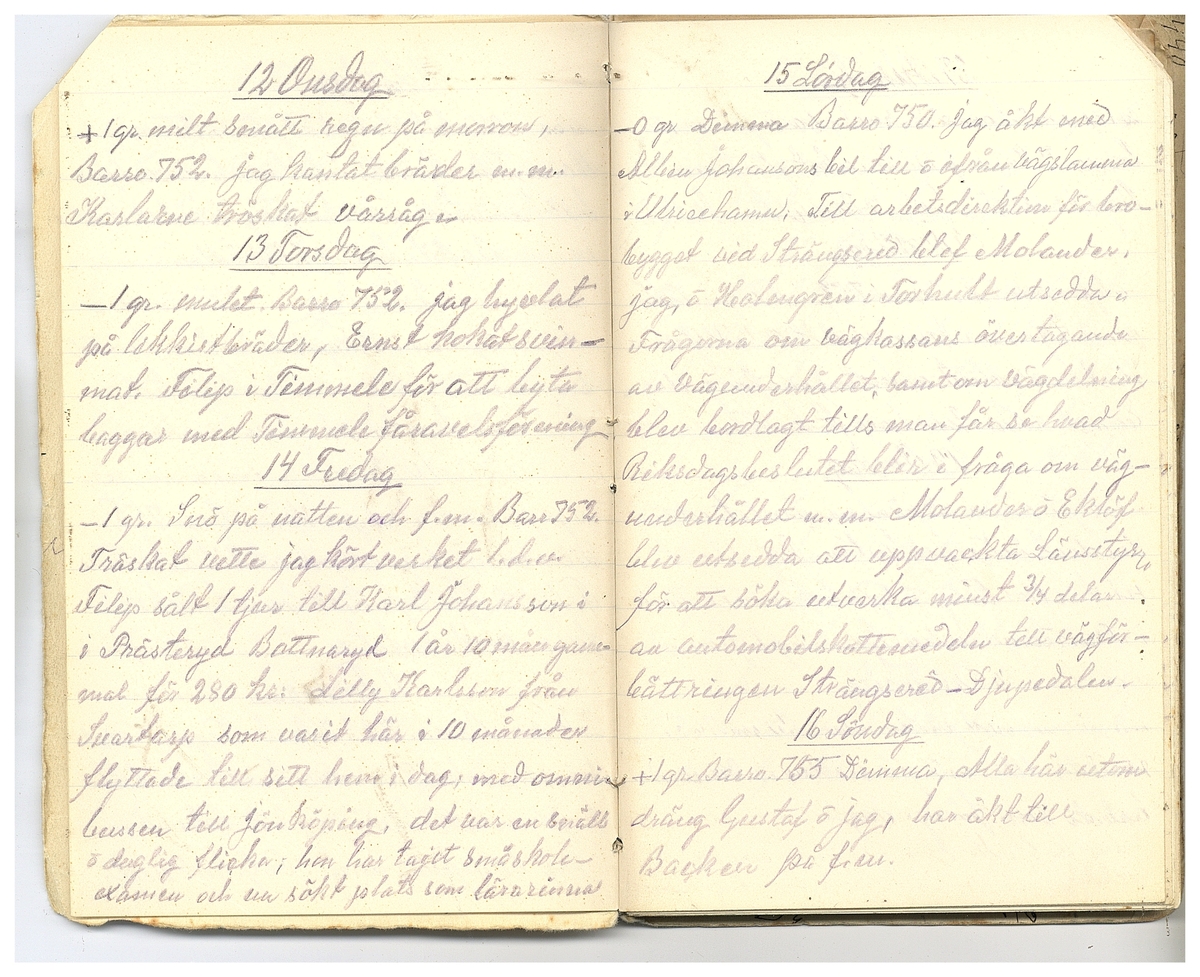 12 Onsdag
+1 gr. milt smått regn på morron,
Barro. 752. jag kantat bräder m.m.
Karlarne tröskat vårråg.
13 Torsdag
–1 gr. mulet. Barro 752. jag hyvlat
på likkistbräder, Ernst kokat svin–
mat. Filip i Timmele för att byta
baggar med Timmele fåravelsförening
14 Fredag
–1 gr. Snö på natten och f.m. Barr 752.
Tröskat vette jag kört verket t.d.v.
Filip sålt 1 tjur till Karl Johansson i
i Prästeryd Bottnaryd 1 år 10 mån gam–
mal för 280 kr: Lilly Karlsson från
Svartarp som varit här i 10 månader
flyttade till sitt hem i dag, med omni
bussen till Jönköping, det var en snäll
o duglig flicka, hon har tagit småskole–
examen och nu sökt plats som lärarinna
15 Lördag
–0 gr Dimma Barro 750. jag åkt med
Albin Johansons bil till o ifrån vägstämma
i Ulricehamn. Till arbetsdirektion för bro–
bygget vid Strängsered blef Molander,
jag, o Holmgren i Torhult utsedda.
Frågorna om vägkassans övertagande
av vägunderhållet, samt om vägdelning
blev bordlagt tills man får se hvad
Riksdagsbeslutet blir i fråga om väg–
underhållet m.m. Molander o Eklöf
blev utsedda att uppvackta Länsstyr„
för att söka utverka minst 3/4 delar
av automobilskattemedeln till vägför–
bättringen Strängsered–Djupedalen.
16 Söndag
+1 gr. Barro. 755 Dimma, Alla här utom
dräng Gustaf o jag, har åkt till
Backen på f.m.